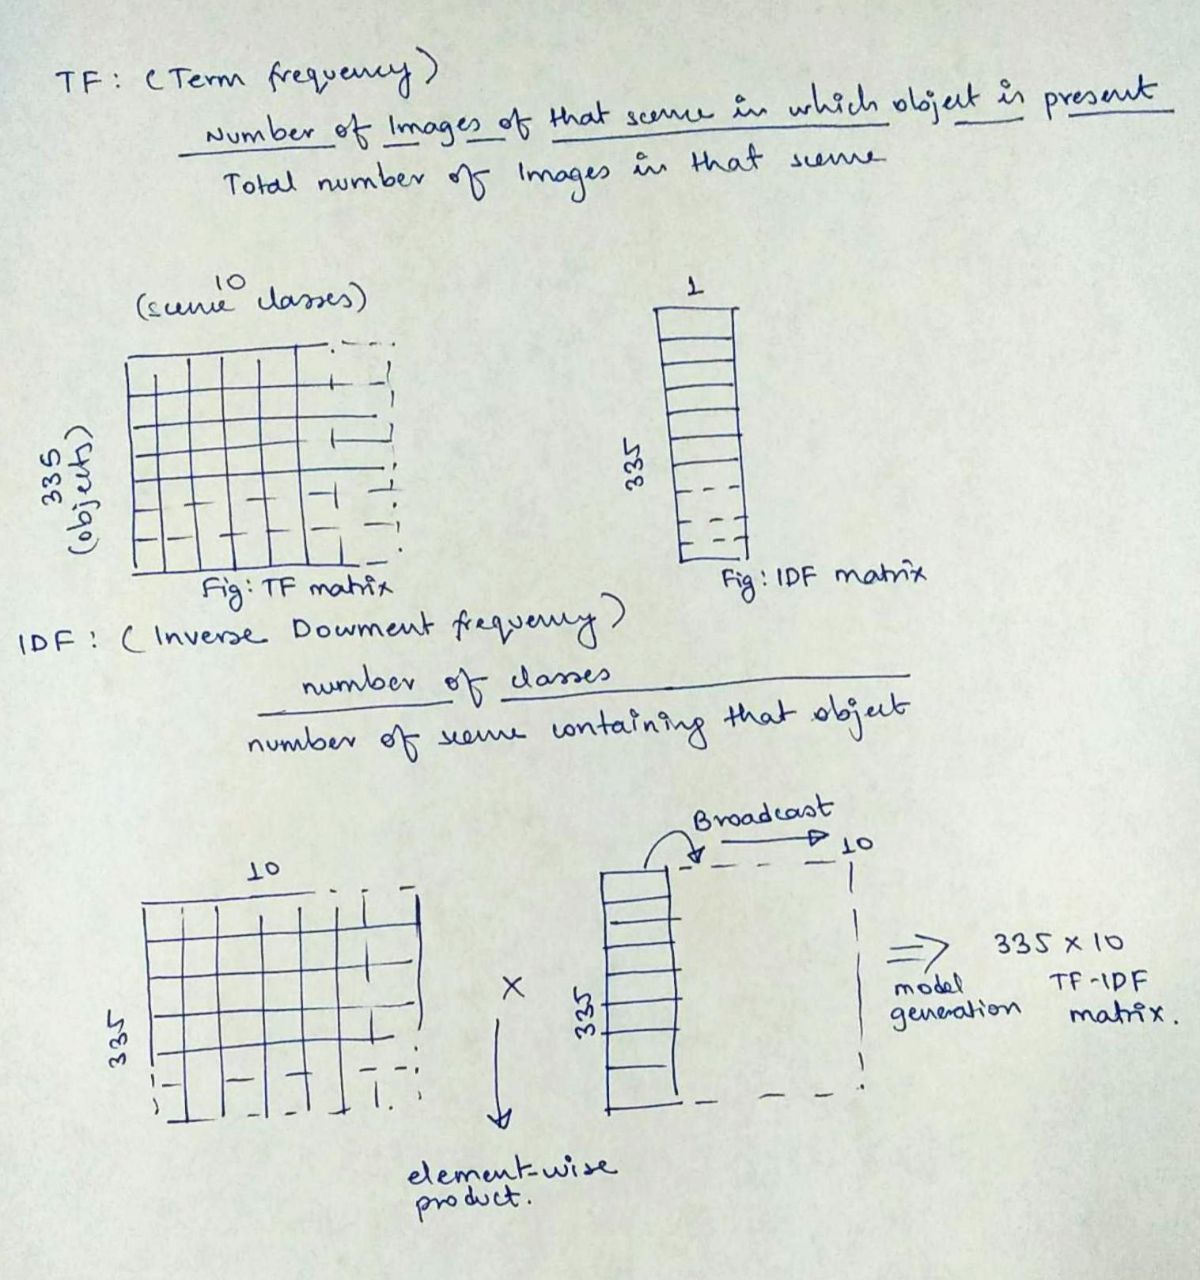 TF: (Term frequency)
Number of Images of that scene in which object is present
Total number of Images in that scene
10
(scene classes)
335
(objects)
Fig: TF matrix
1
335
Fig: IDF matrix
IDF: (Inverse Document frequency)
number of classes
number of scene containing that object
10
335
x
element-wise
product.
Broadcast
10
335
⇒ 335 x 10
model TF-IDF
generation matrix.